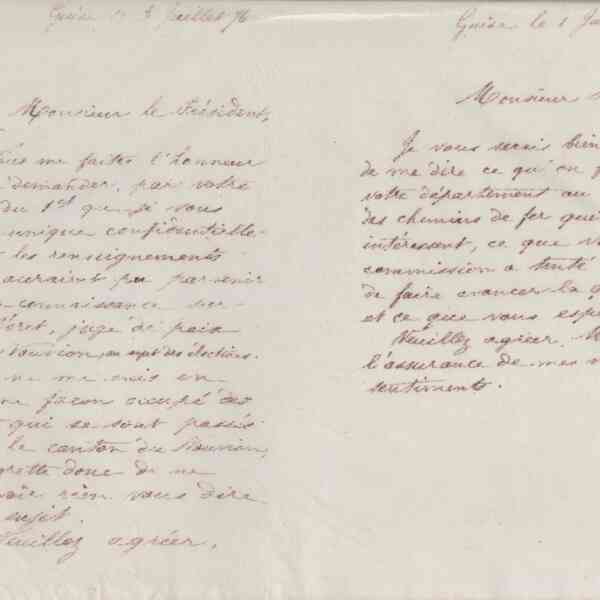 Guise le Juillet 76
Monsieur le Président,
me faites l'honneur
demander, par votre
du 1er que je vous
unique confidentielle-
les renseignements
auraient pu parvenir
connaissance sur
juge de paix
Nouvion, au sujet des élections.
ne me suis en
façon occupé des
qui se sont passés
le canton du Nouvion,
regrette donc de ne
rien vous dire
sujet.
Veuillez agréer,
Guise le 1 Ju
Monsieur
Je vous serais bien
de me dire ce qu'on
votre département au
des chemins de fer qui
intéressent, ce que
commission a tenté
de faire avancer la
et ce que vous
Veuillez agréer, M
l'assurance de mes
sentiments.